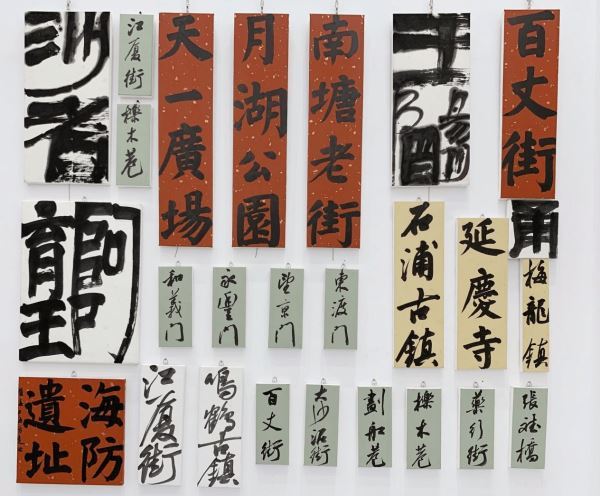 江厦街
櫟木巷
天一廣場
月湖公園
南塘老街
百丈街
育王
石浦古鎮
延慶寺
甬
梅龍鎮
和義门
永豐门
望京门
東渡门
海防
遺址
江厦街
鳴鶴古鎮
百丈街
大沙泥街
劃船巷
櫟木巷
藥行街
張斌橋